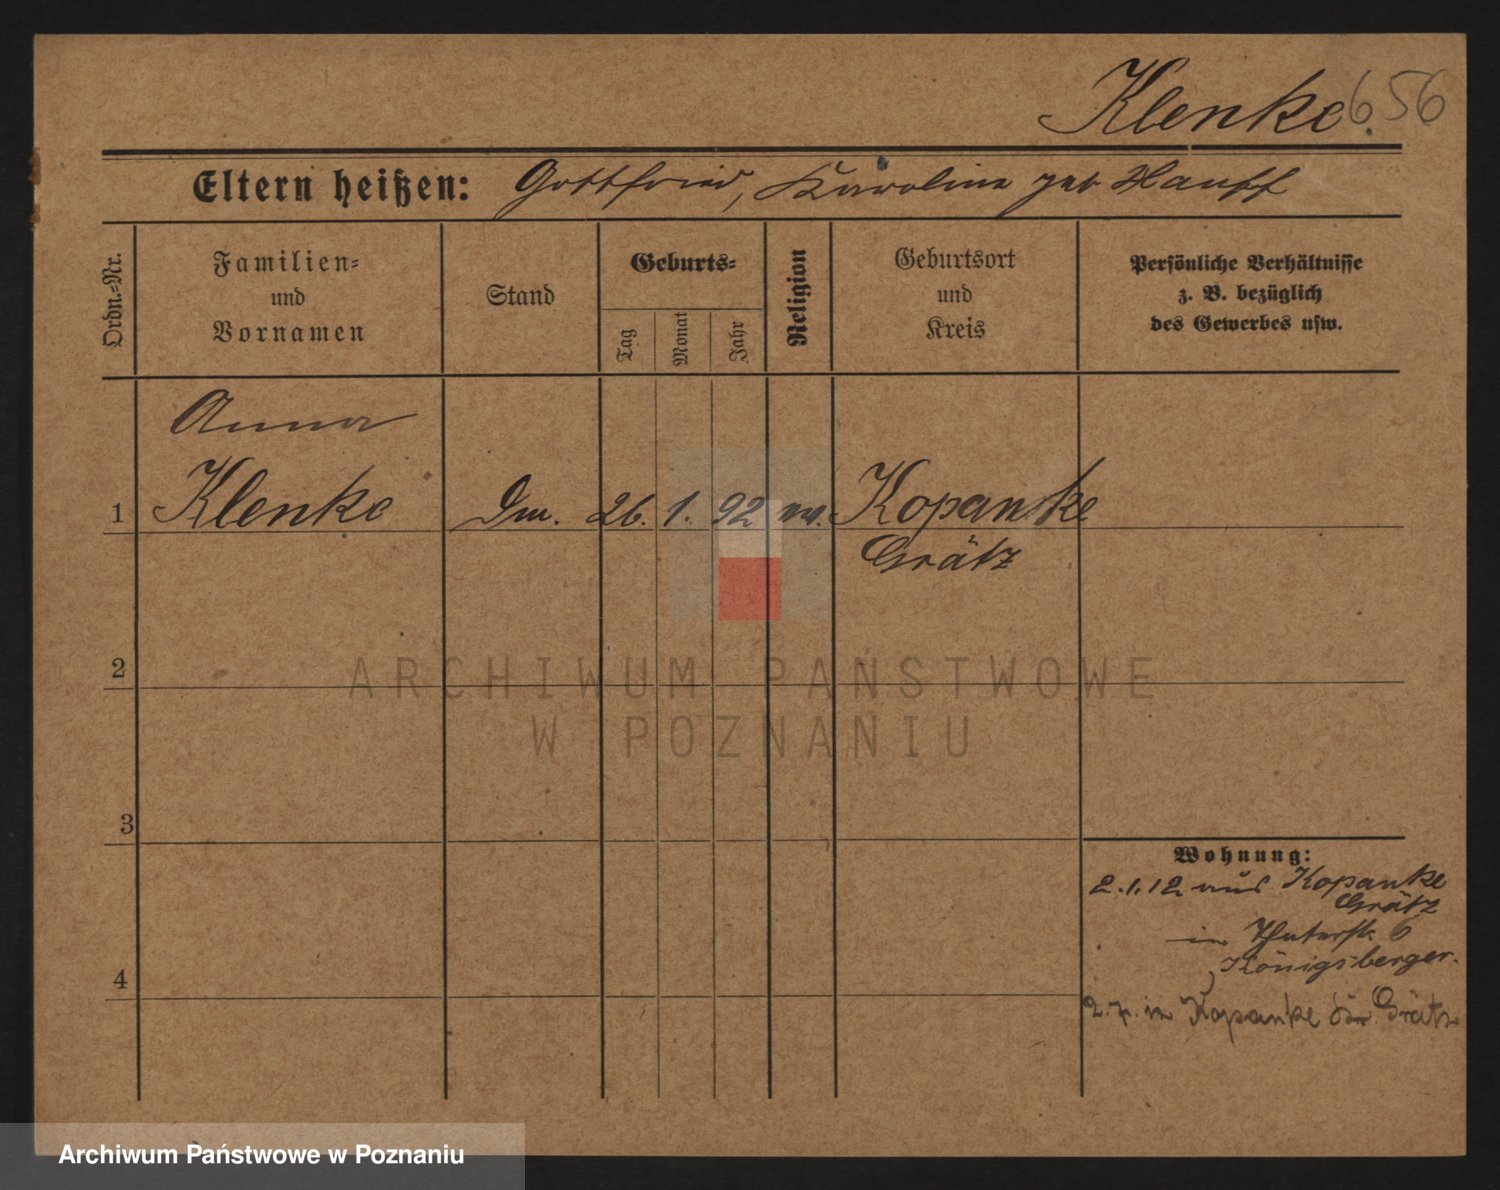 Klenke. 656
Eltern heißen: Gottfried, Karoline geb Hauff
Ordn.-Nr.
Familien-
und
Vornamen
Stand
Geburts-
Tag
Monat
Jahr
Religion
Geburtsort
und
Kreis
Persönliche Verhältnisse
z. B. bezüglich
des Gewerbes usw.
Anna
1 Klenke Dm. 26. 1. 92 ev. Kopanke
Grätz
2
3
4
Wohnung:
2.1.12 aus Kopanke
Grätz
in 6
Königsberger.
in Kopanke Grätz
ARCHIWUM PAŃSTWOWE
W POZNANIU
Archiwum Państwowe w Poznaniu